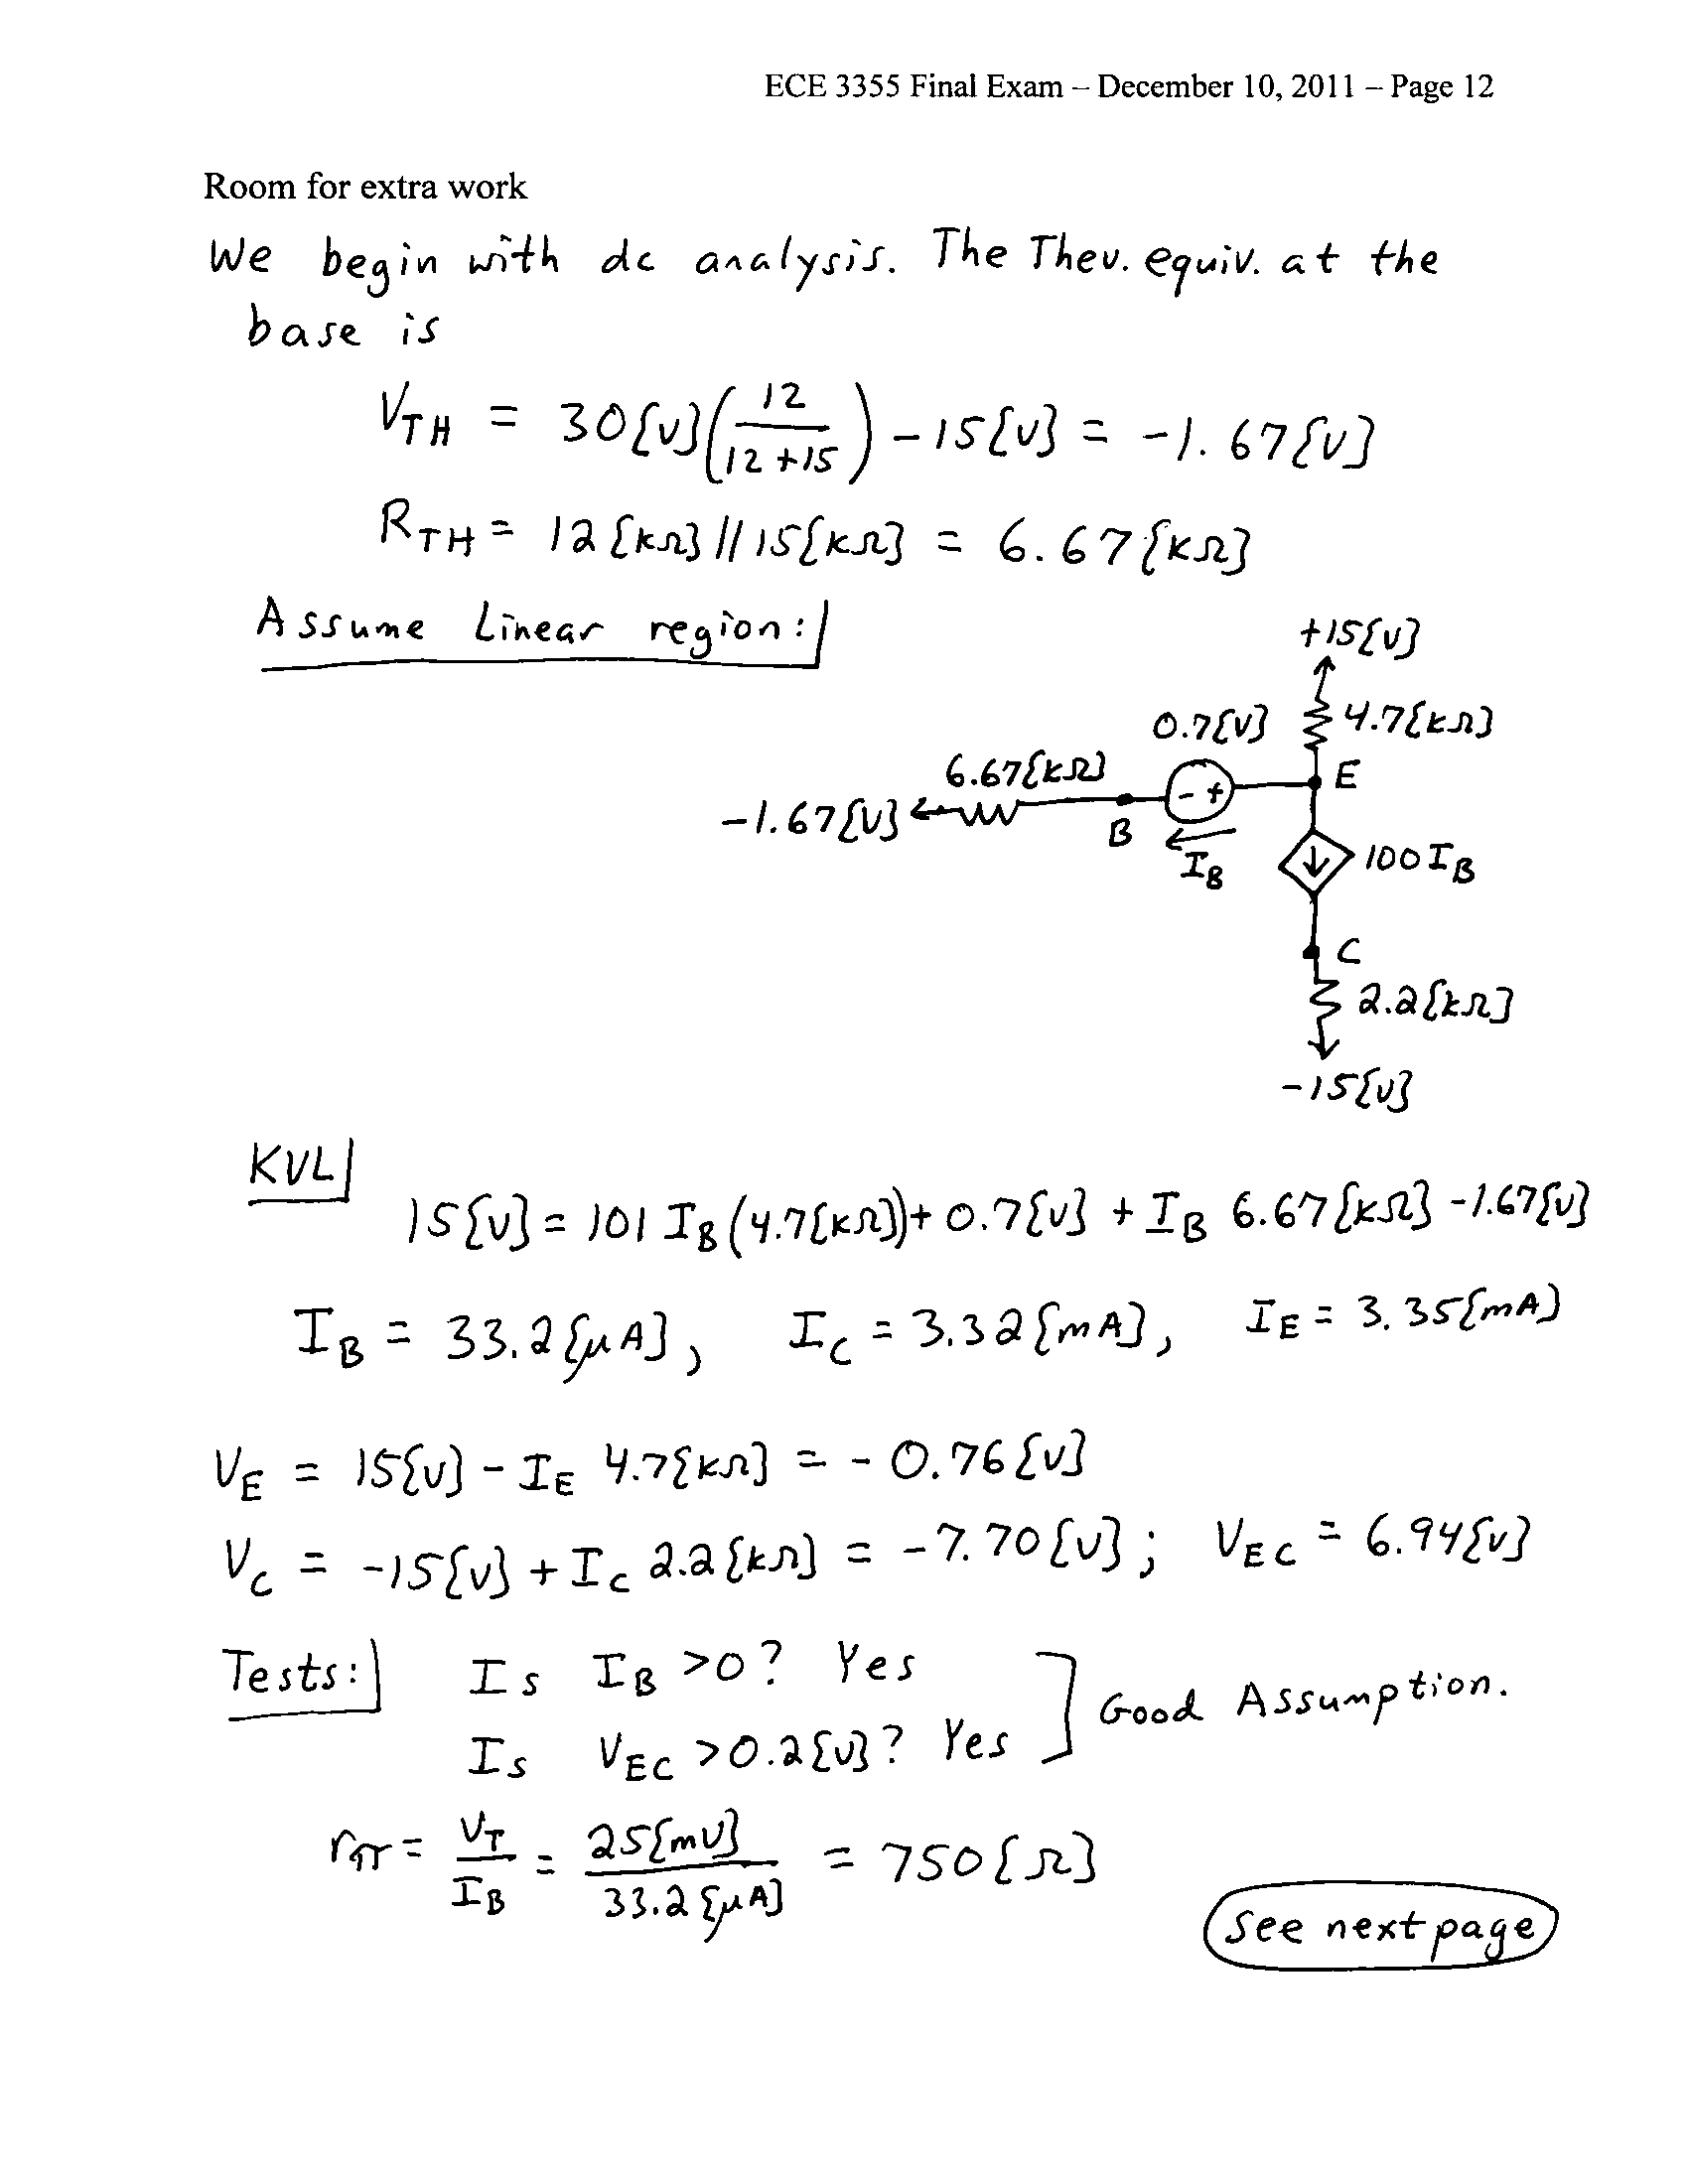 ECE 3355 Final Exam – December 10, 2011 – Page 12
Room for extra work
We begin with dc analysis. The Thev. equiv. at the
base is
V_TH = 30{V}(12/(12+15)) - 15{V} = -1.67{V}
R_TH = 12{kΩ} // 15{kΩ} = 6.67{kΩ}
Assume Linear region:
+15{V}
0.7{V} 4.7{kΩ}
6.67{kΩ} - + E
-1.67{V} B
I_B 100 I_B
C
2.2{kΩ}
-15{V}
KVL
15{V} = 101 I_B (4.7{kΩ}) + 0.7{V} + I_B 6.67{kΩ} - 1.67{V}
I_B = 33.2{μA}, I_C = 3.32{mA}, I_E = 3.35{mA}
V_E = 15{V} - I_E 4.7{kΩ} = -0.76{V}
V_C = -15{V} + I_C 2.2{kΩ} = -7.70{V}; V_EC = 6.94{V}
Tests: Is I_B >0? Yes
Is V_EC >0.2{V}? Yes ] Good Assumption.
r_π = V_T/I_B = 25{mV}/33.2{μA} = 750{Ω}
See next page